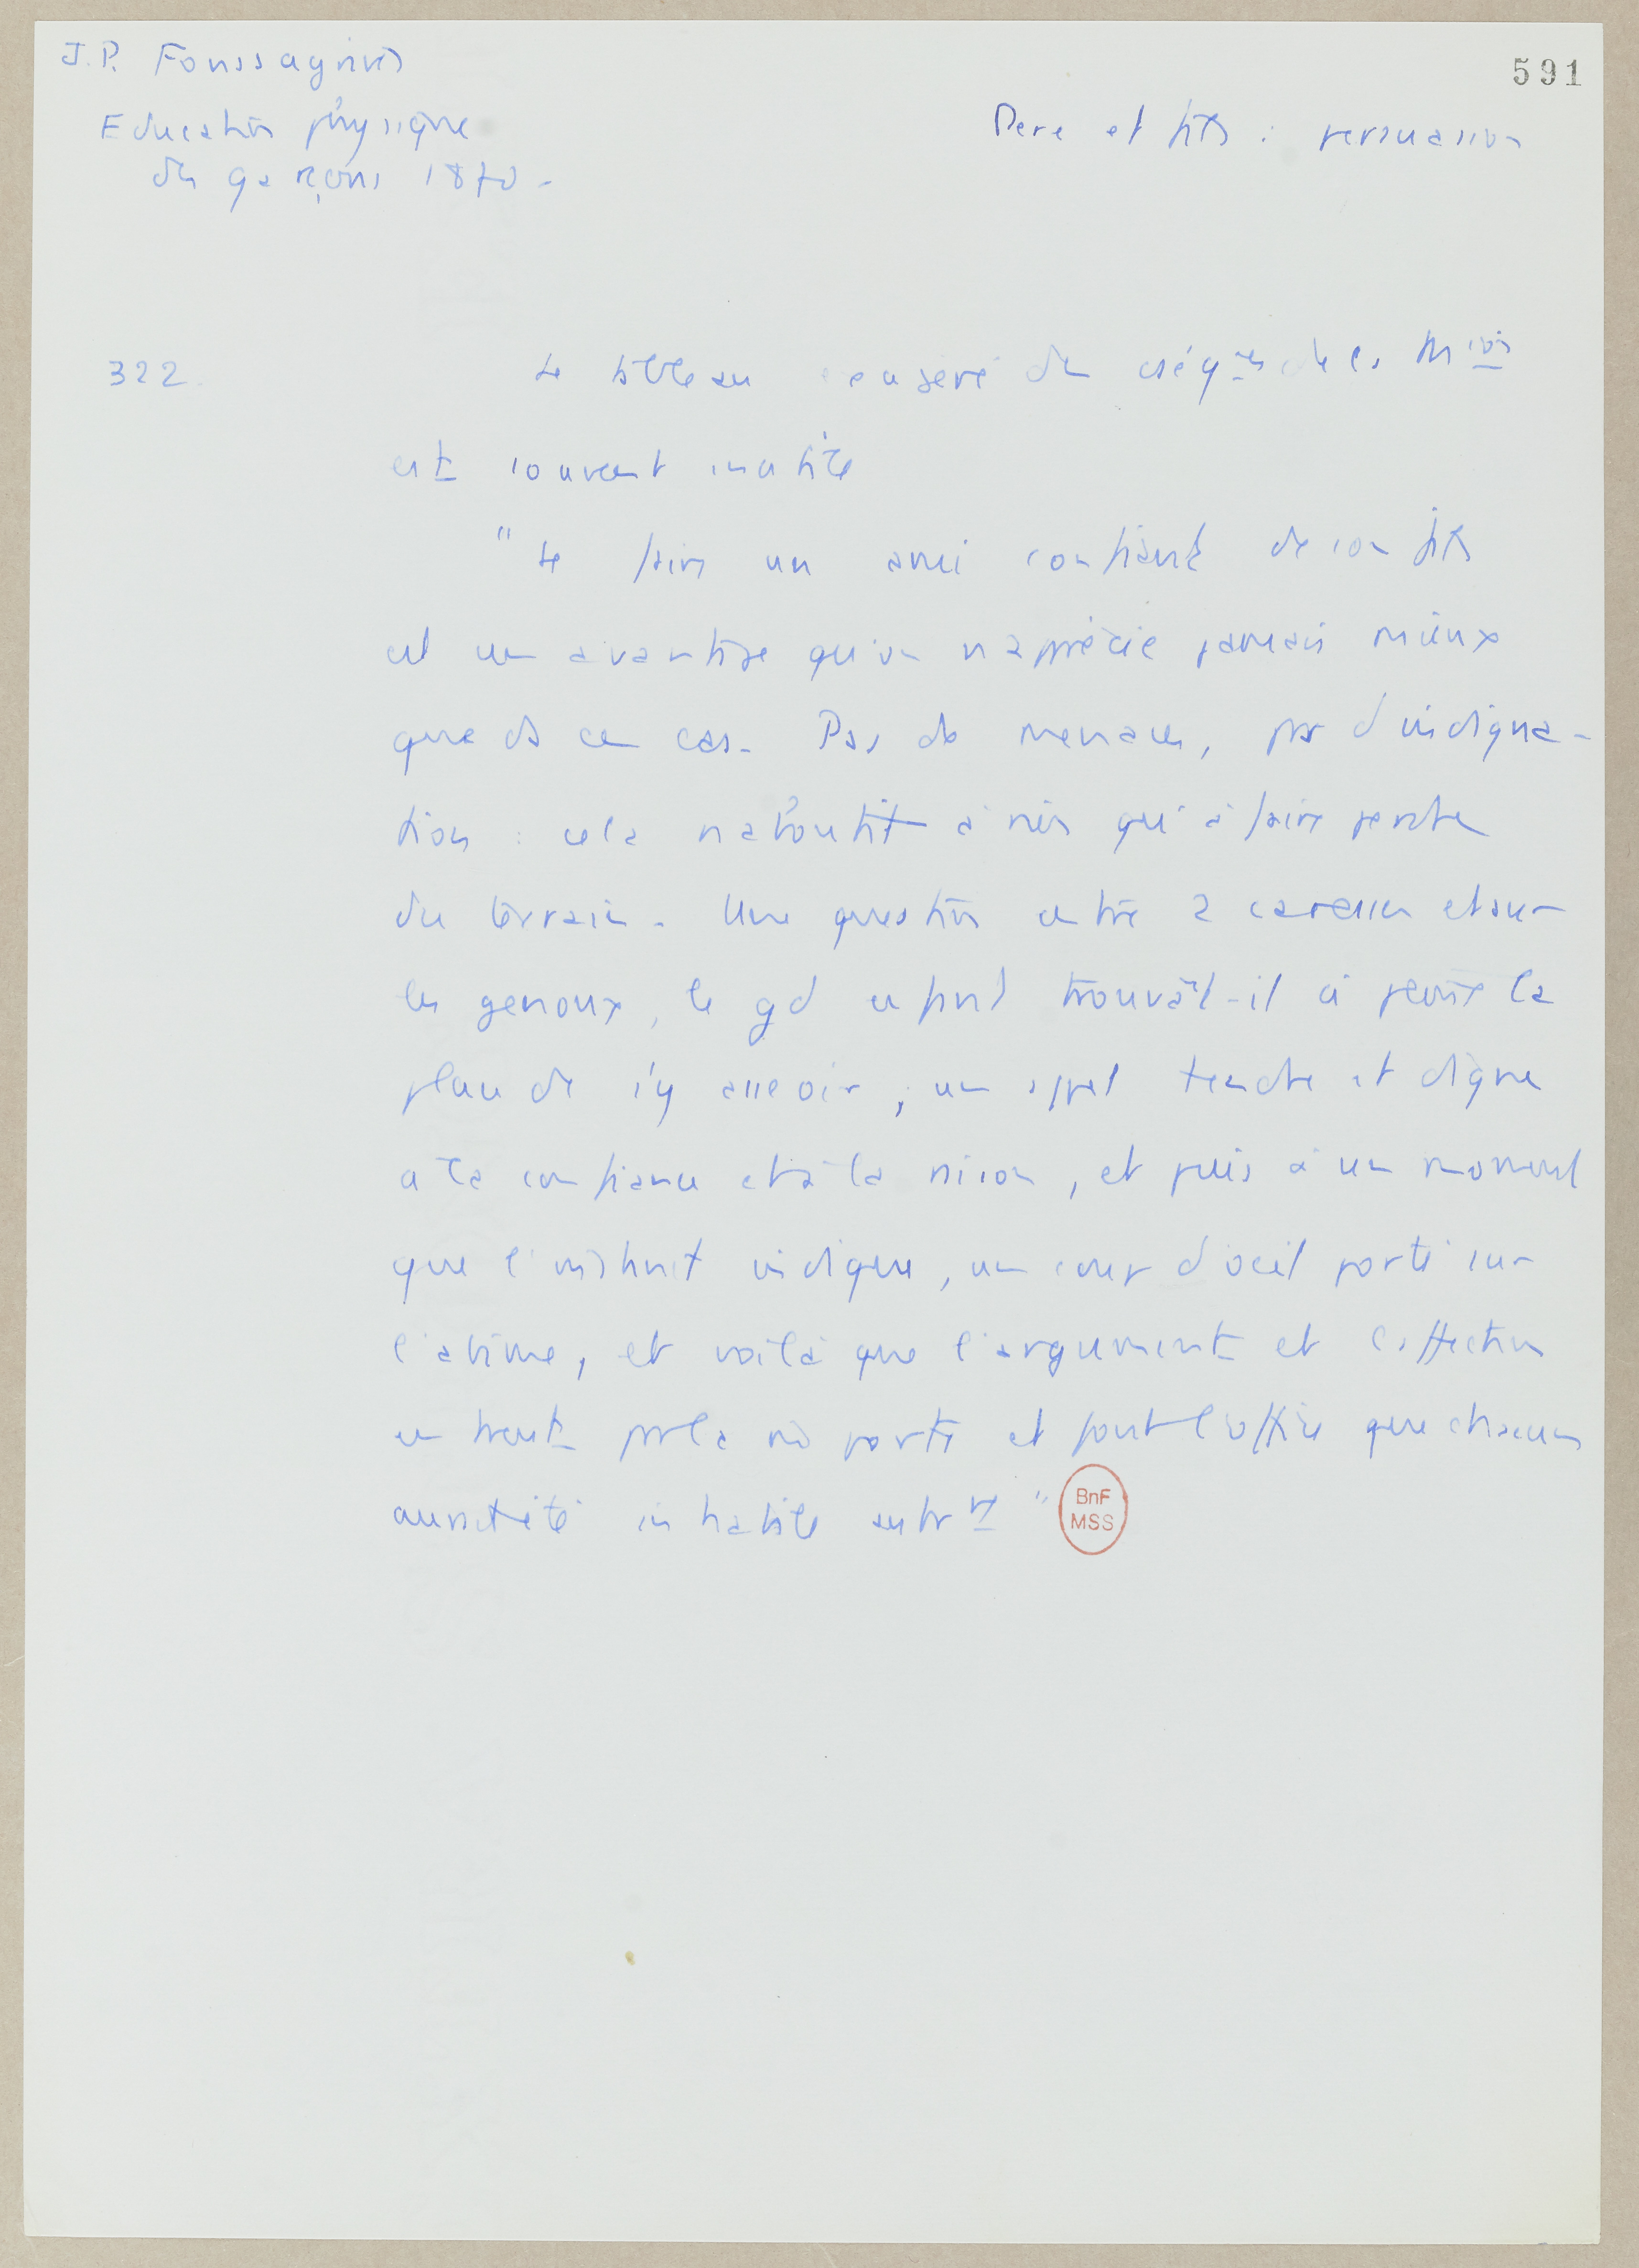 J.P. Fonssagrives
591
Education physique
des garçons 1870 -
Père et fils : persuasion
322.
Le tableau exagéré des cséqces de la Mion
est souvent inutile
" Se faire un ami confiant de son fils
est un avantage qu'on n'apprécie jamais mieux
que ds ce cas. Pas de menaces, pas d'indigna-
tion : cela n'aboutit à rien qu'à faire perdre
du terrain. Une question entre 2 caresses et sur
les genoux, le gd enfant trouvât-il à peine la
place de s'y asseoir ; un appel tendre et digne
à la confiance et à la raison, et puis à un moment
que l'instinct indique, un coup d'oeil porté sur
l'abîme, et voilà que l'argument et l'affection
entrent par la m porte et font l'office que chacun
aurait été inhabile autrt "
BnF
MSS